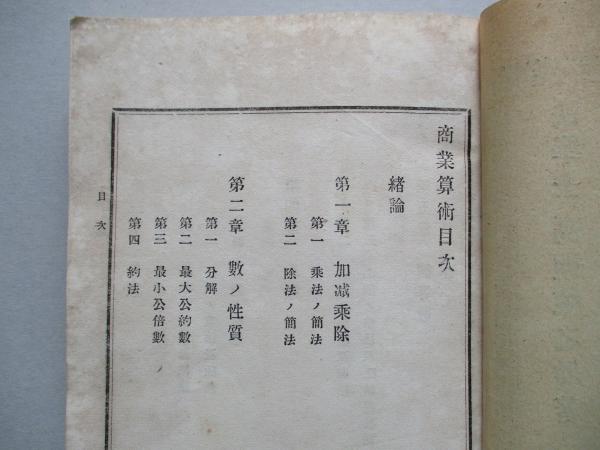 商業算術目次
緒論
第一章 加减乘除
第一 乘法ノ簡法
第二 除法ノ簡法
第二章 數ノ性質
第一 分解
第二 最大公約數
第三 最小公倍數ノ
第四 約法
目次